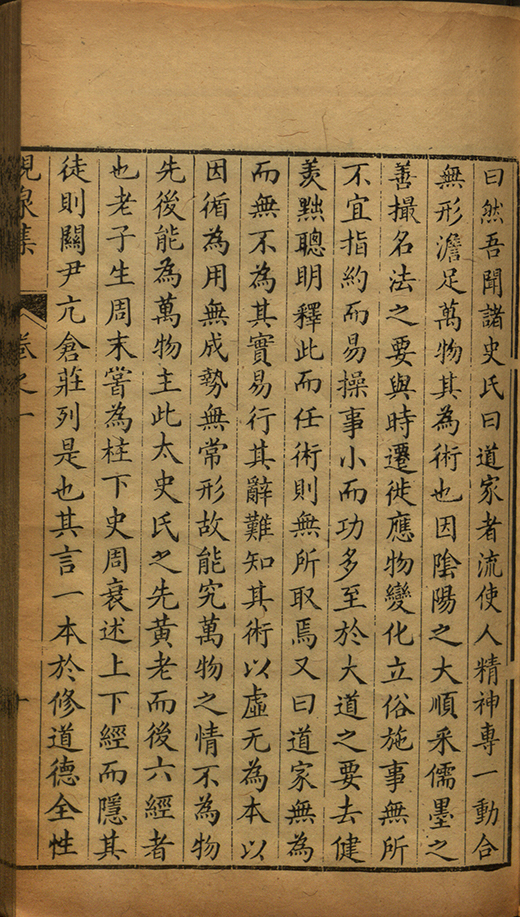 曰然吾聞諸史氏曰道家者流使人精神專一動合
無形澹足萬物其為術也因陰陽之大順采儒墨之
善撮名法之要與時遷徙應物變化立俗施事無所
不宜指約而易操事小而功多至於大道之要去健
羡黜聰明釋此而任術則無所取焉又曰道家無為
而無不為其實易行其辭難知其術以虛无為本以
因循為用無成勢無常形故能究萬物之情不為物
先後能為萬物主此太史氏之先黃老而後六經者
也老子生周末嘗為柱下史周衰述上下經而隱其
徒則關尹亢倉莊列是也其言一本於修道德全性
峴泉集 卷之一 十